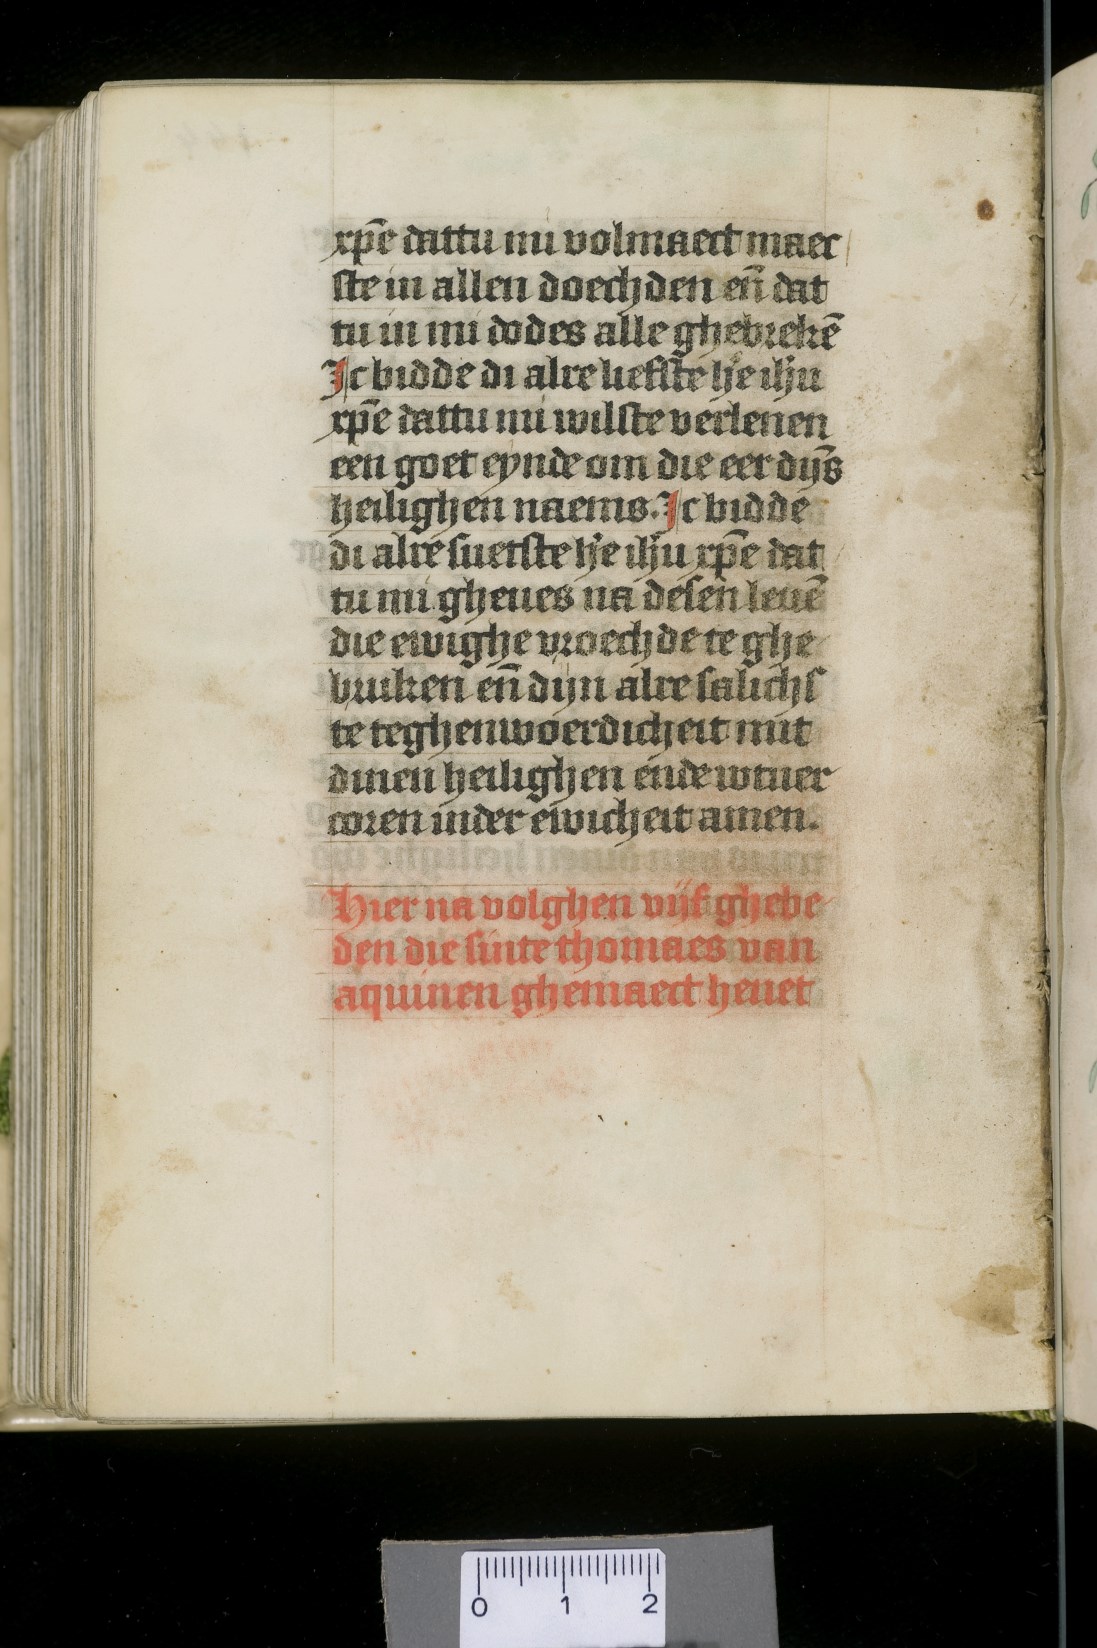 xp̄e dattu mi volmaect maec
ste in allen doechden en̄ dat
tu in mi dodes alle ghebrekē
Ic bidde di alre liefste h̓e ih̓u
xp̄e dattu mi wilste verlenen
een goet eynde om die eer dijn̄s
heilighen naems. Ic bidde
di alre suetste h̓e ih̓u xp̄e dat
tu mi gheues na desen leuē
die ewighe vroechde te ghe
bruken en̄ dijn alre salichs
te teghenwoerdicheit mit
dinen heilighen ende wtuer
coren inder ewicheit amen.
Hier na volghen vijf ghebe
den die sinte thomaes van
aquinen ghemaect heuet
0 1 2